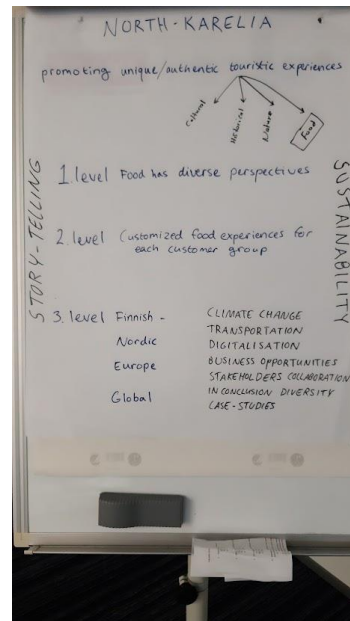 NORTH-KARELIA
promoting unique/authentic touristic experiences
Cultural
Historical
Nature
Food
STORY-TELLING
SUSTAINABILITY
1. level Food has diverse perspectives
2. level Customized food experiences for
each customer group
3. level Finnish -
Nordic
Europe
Global
CLIMATE CHANGE
TRANSPORTATION
DIGITALISATION
BUSINESS OPPORTUNITIES
STAKEHOLDERS COLLABORATION
IN CONCLUSION DIVERSITY
CASE-STUDIES